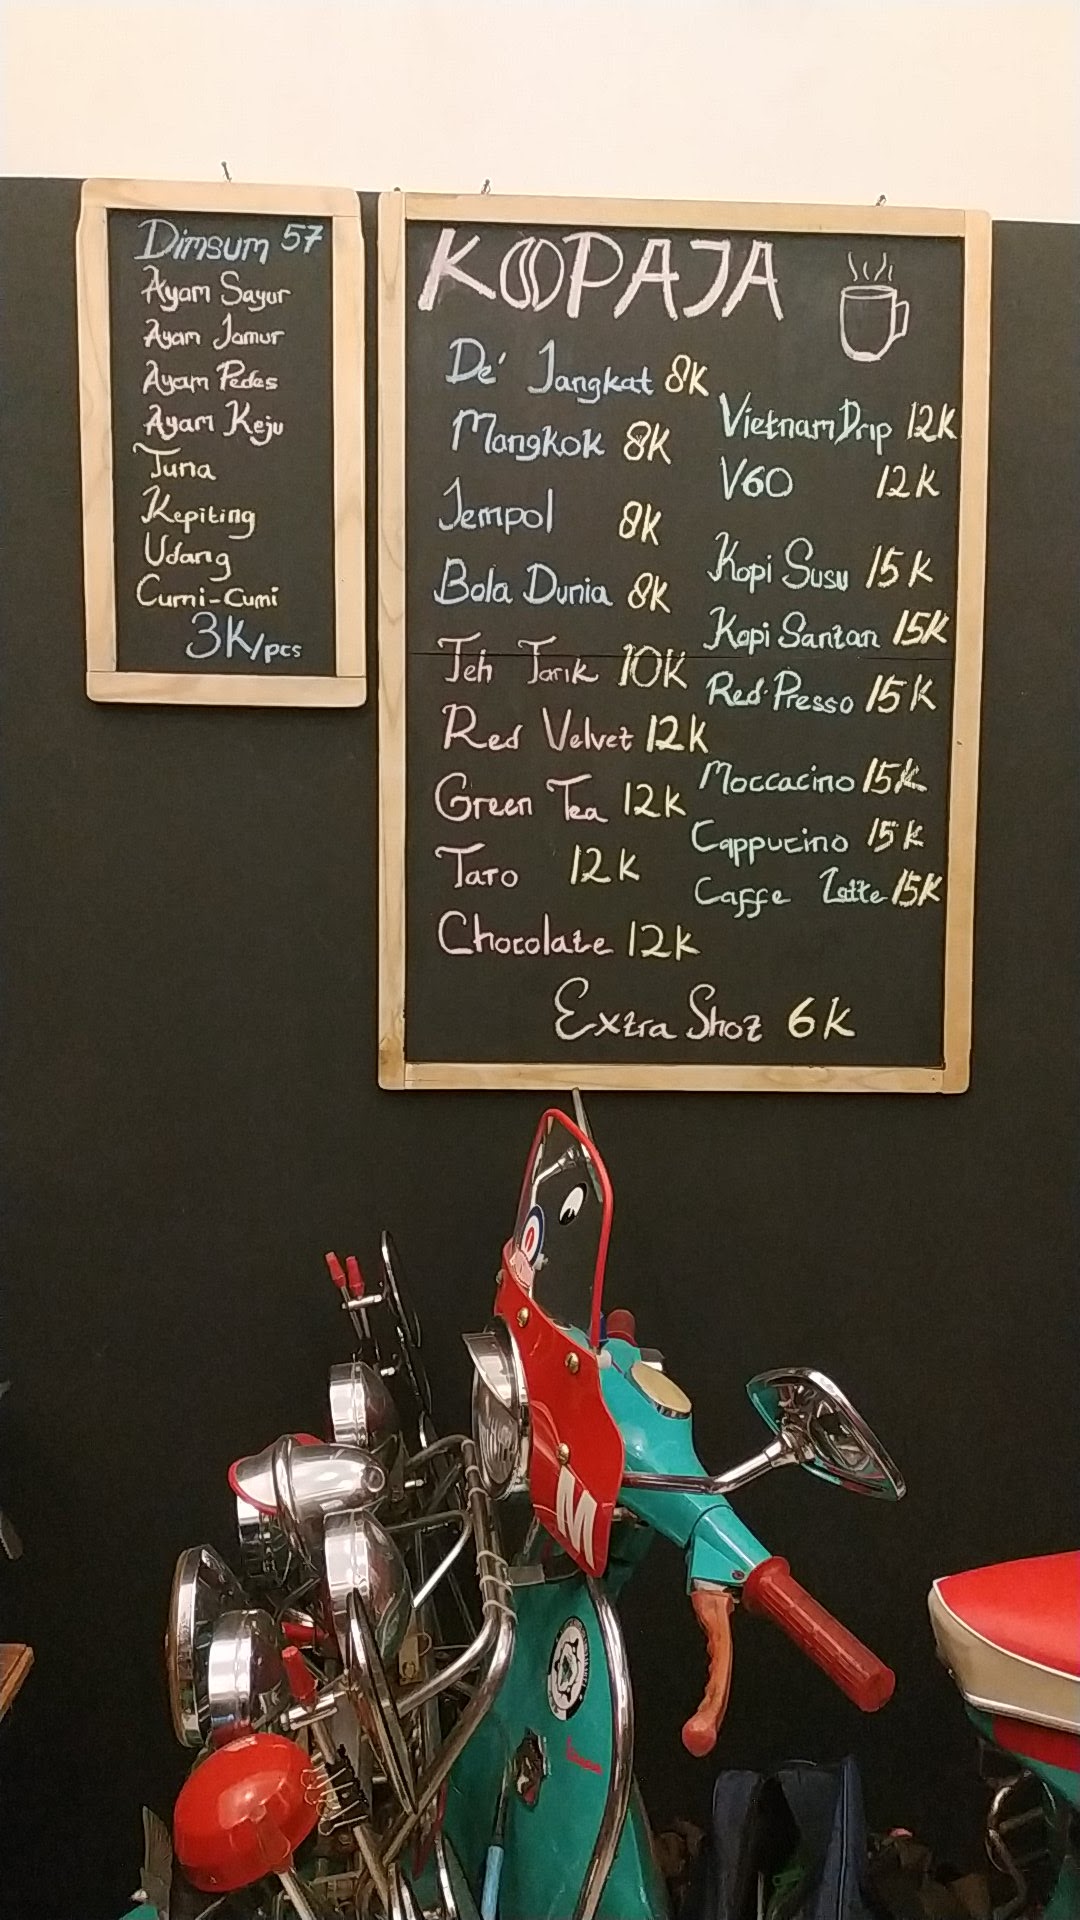 Dimsum 57
Ayam Sayur
Ayam Jamur
Ayam Pedes
Ayam Keju
Tuna
Kepiting
Udang
Cumi-Cumi
3K/pcs
KOPAJA
De' Jangkat 8K
Mangkok 8K
Jempol 8K
Bola Dunia 8K
Teh Tarik 10K
Red Velvet 12K
Green Tea 12K
Taro 12K
Chocolate 12K
Vietnam Drip 12K
V60 12K
Kopi Susu 15K
Kopi Santan 15K
Red Presso 15K
Moccacino 15K
Cappucino 15K
Caffe Latte 15K
Extra Shot 6K
M